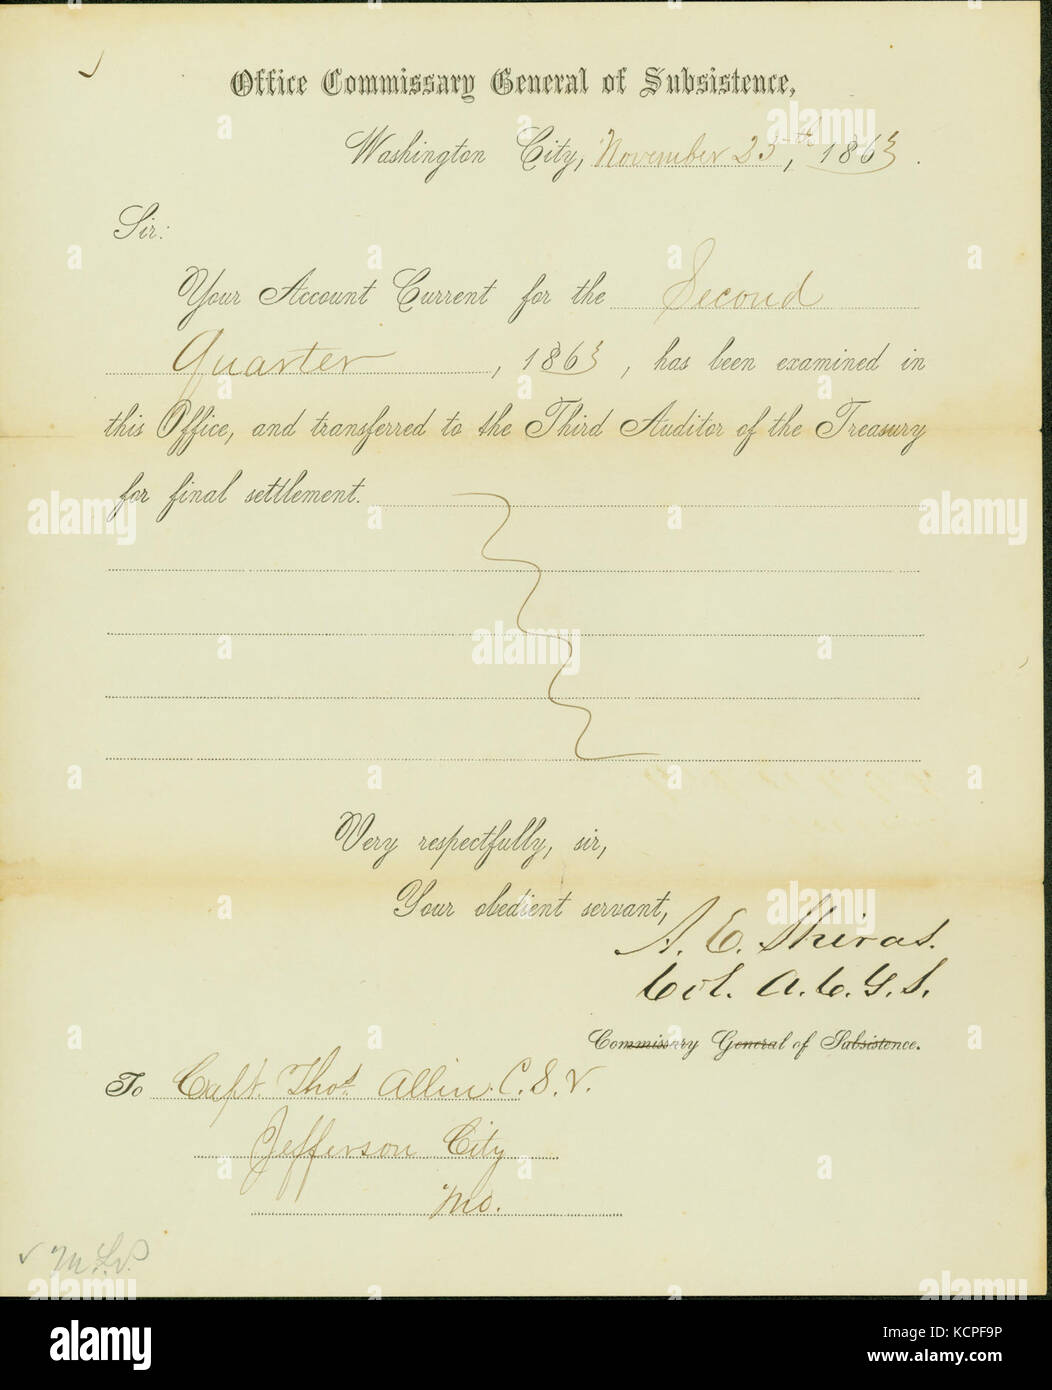 Office Commissary General of Subsistence,
Washington City, November 25th, 1863.
Sir:
Your Account Current for the Second
Quarter, 1863, has been examined in
this Office, and transferred to the Third Auditor of the Treasury
for final settlement.
Very respectfully, sir,
Your obedient servant,
A. E. Shiras.
Col. A. C. G. S.
Commissary General of Subsistence.
To Capt. Thos. Allin C. S. V.
Jefferson City
Mo.
alamy stock photo
KCPF9P
www.alamy.com